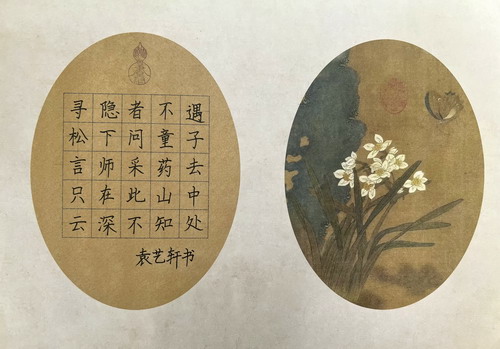 寻隐者不遇
松下问童子
言师采药去
只在此山中
云深不知处
袁艺轩书